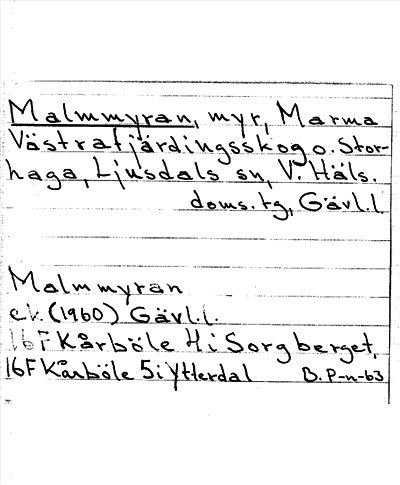 Malmmyran, myr, Marma
Västrafjärdingsskog o. Stor-
haga, Ljusdals sn, V. Häls.
doms. tg, Gävl.l.
Malmmyran
ek. (1960) Gävl.l.
16F Kårböle 4i Sorgberget,
16F Kårböle 5i Ytterdal B. P-n-63